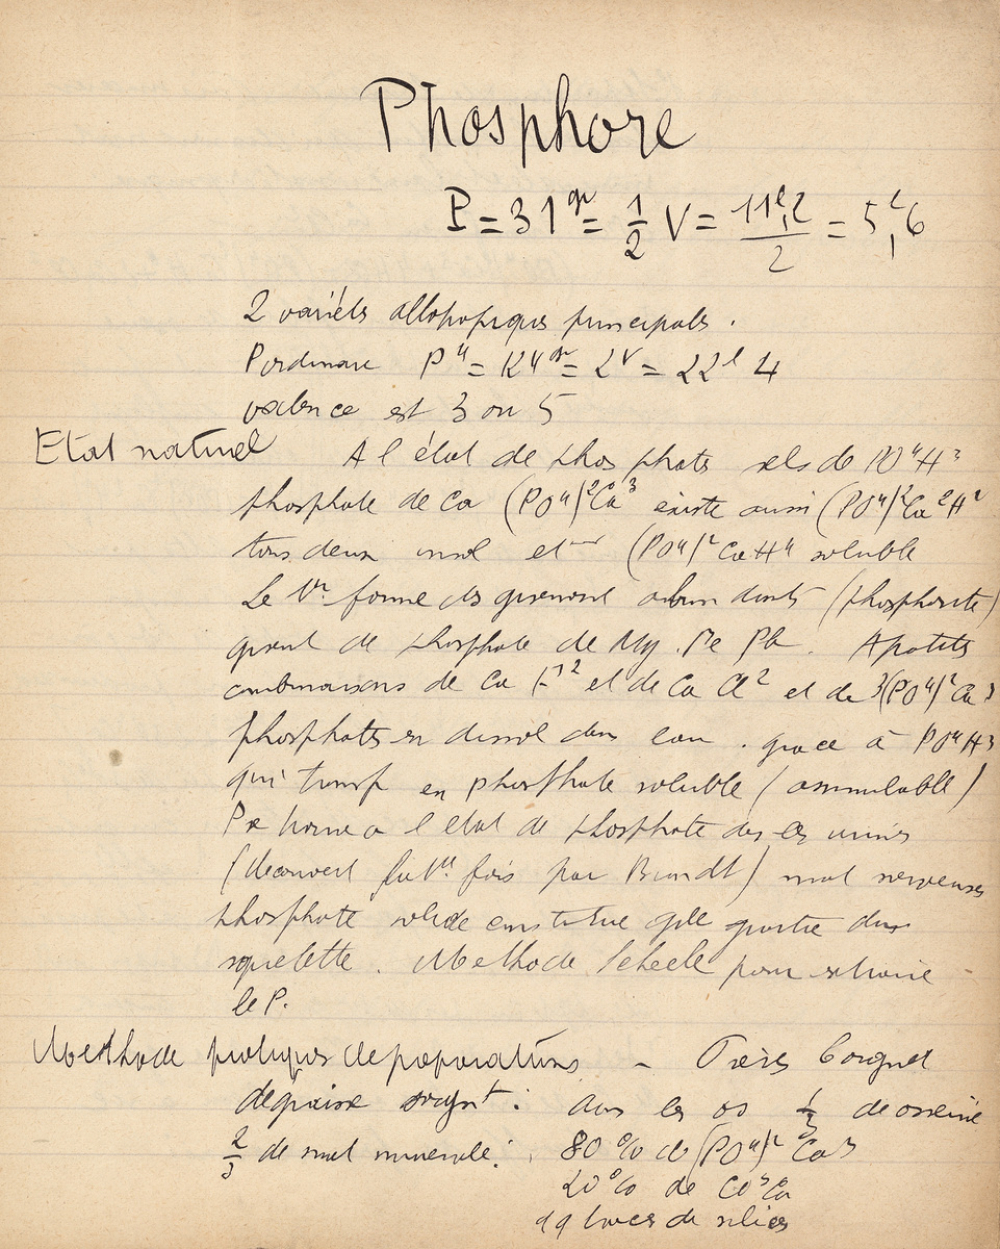 Phosphore
P = 31gr = 1/2 V = 11l,2/2 = 5l,6
2 variétés allotropiques principales.
P ordinaire P⁴ = 124gr = 2V = 22l 4
valence est 3 ou 5
Etat naturel A l état de phosphate sels de PO⁴H³
phosphate de Ca (PO⁴)²Ca³ existe aussi (PO⁴)²Ca²H²
tous deux insol et (PO⁴)²CaH⁴ soluble
Le 1er forme des gisement abondants (phosphorite)
de phosphate de Mg. Fe Pb. Apatite
combinaisons de Ca F² et de Ca Cl² et de 3(PO⁴)²Ca³
phosphates dissol dans eau. grace à PO⁴H³
qui transf en phosphate soluble (assimilable)
P se trouve a l etat de phosphate ds les urines
(decouvert 1er fois par Brandt) mat nerveuses
phosphate solide constitue gde partie du
squelette. Methode Scheele pour extraire
le P.
Methode pratiques de preparations - Frères Coignet
degraisse soigt: dans les os 1/3 de osseine
2/3 de mat minerale: 80% de (PO⁴)² Ca³
20% de CO³Ca
qq traces de silice